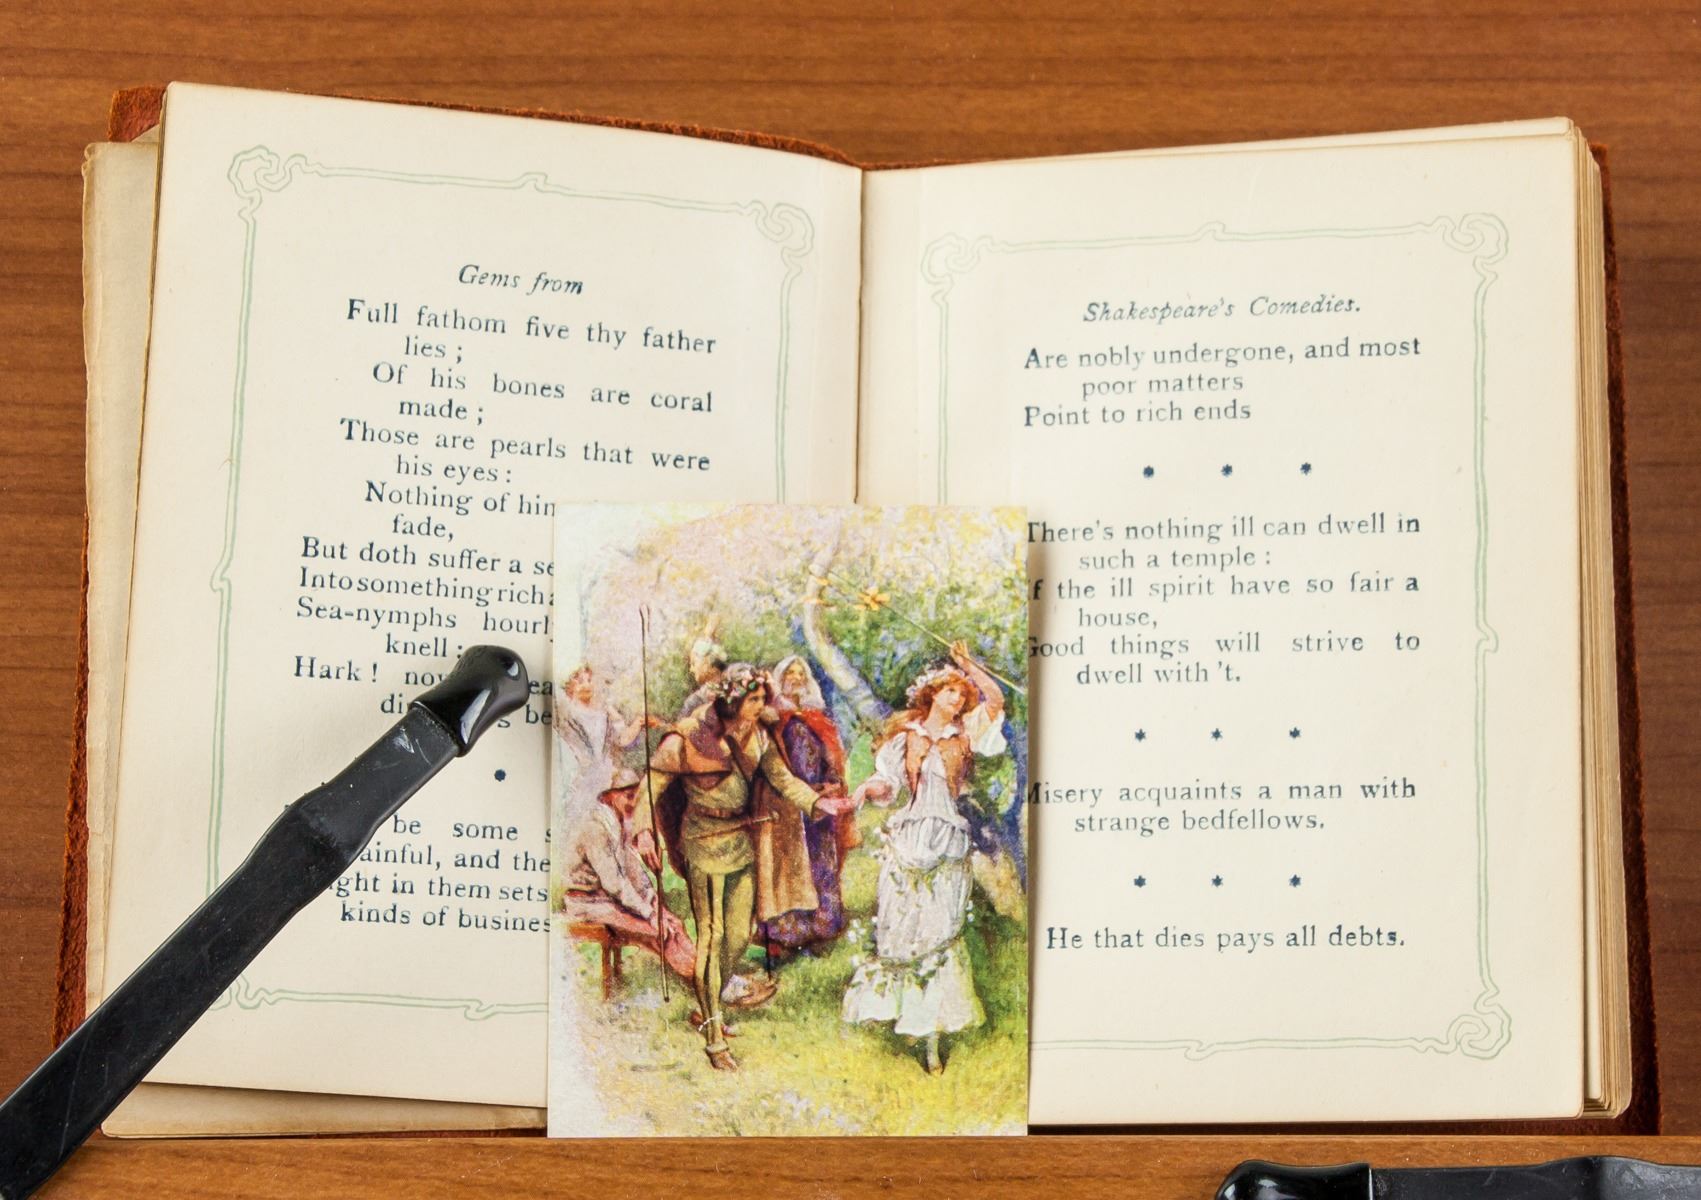 Gems from
Full fathom five thy father
lies ;
Of his bones are coral
made ;
Those are pearls that were
his eyes :
Nothing of
fade,
But doth suffer a
Into something rich
Sea-nymphs
knell :
Hark !
be some
and
in them sets
kinds of
Shakespeare's Comedies.
Are nobly undergone, and most
poor matters
Point to rich ends
* * *
There's nothing ill can dwell in
such a temple :
If the ill spirit have so fair a
house,
Good things will strive to
dwell with 't.
* * *
Misery acquaints a man with
strange bedfellows.
* * *
He that dies pays all debts.